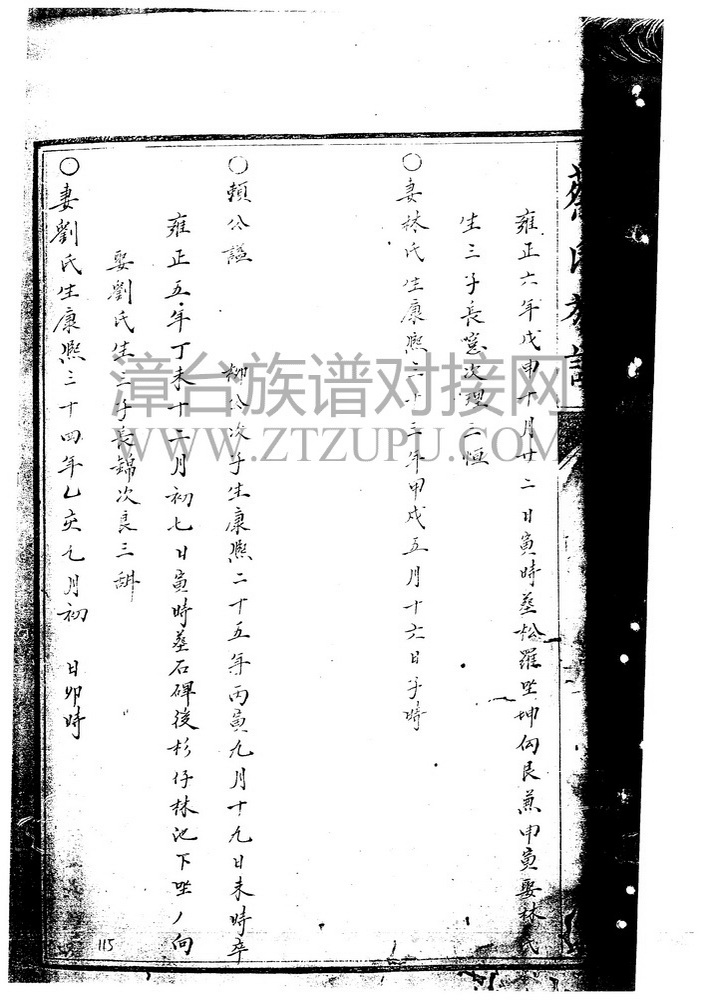 雍正六年戊申十月廿二日寅時葬松羅坐坤向艮兼申寅娶林氏
生三子長 次理三恒
妻林氏生康熙三十三年甲戌五月十六日子時
賴公諡 柳公次子生康熙二十五年丙寅九月十九日未時卒
雍正五年丁未十二月初七日寅時墓石碑後杉仔林池下坐 向
娶劉氏生三子長錦次良三
妻劉氏生康熙三十四年乙亥九月初 日卯時
115
漳台族谱对接网
WWW.ZTZUPU.COM